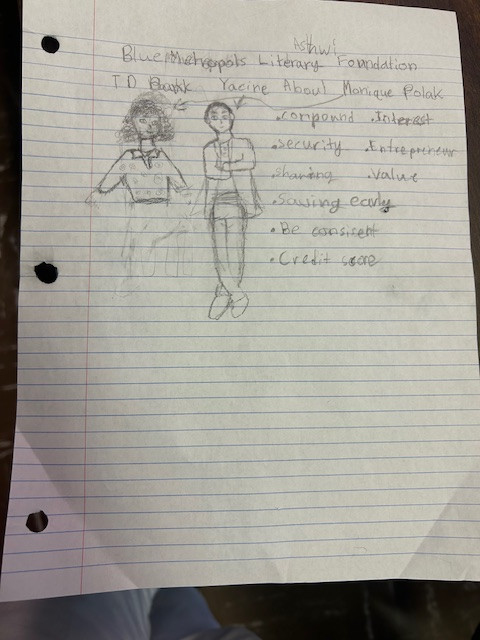 Blue Metropols Literary Foundation
T D Bank Yacine Aboul Monique Polak
• compound • Interest
• security • Entrepreneur
• sharing • value
• Saving early
• Be consisent
• Credit score